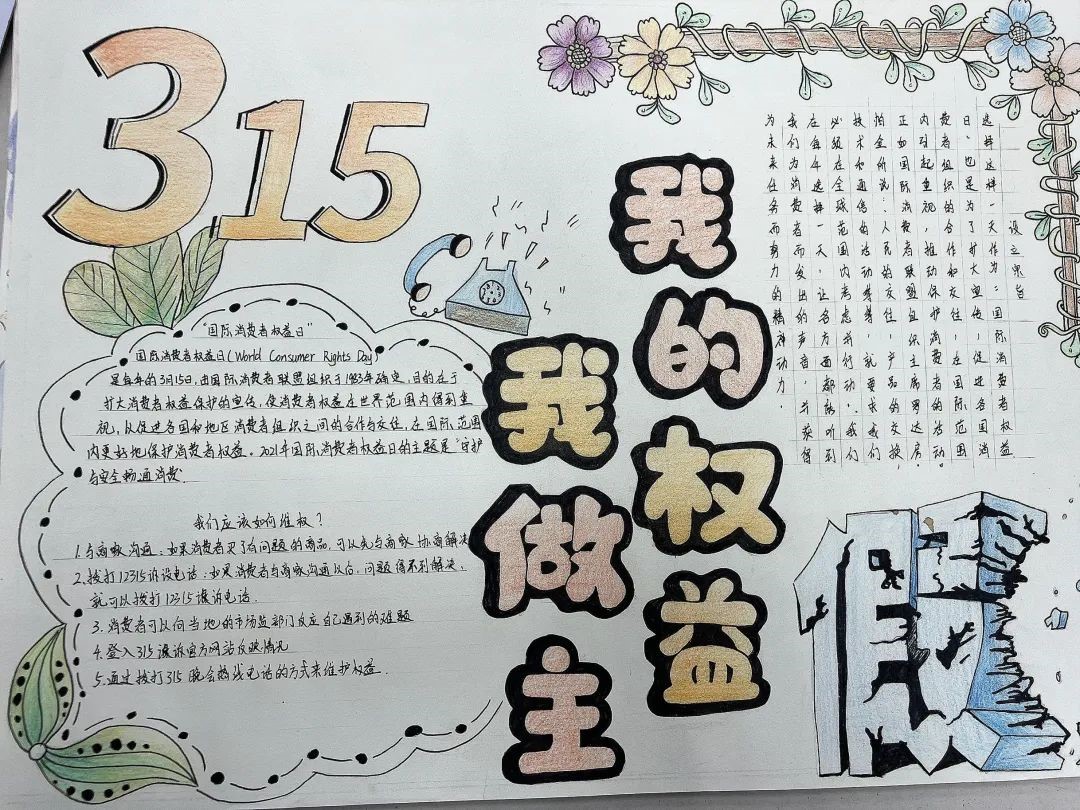 315
我的权益
我做主
"国际消费者权益日"
国际消费者权益日(World Consumer Rights Day)
是每年的3月15日,由国际消费者联盟组织于1983年确定,目的在于
扩大消费者权益保护的宣传,使消费者权益在世界范围内得到重
视,从促进各国和地区消费者组织之间的合作与交往,在国际范围
内更好地保护消费者权益。2021年国际消费者权益日的主题是"守护
与安全畅通消费"
我们应该如何维权?
1.与商家沟通:如果消费者买了有问题的商品,可以先与商家协商解决
2.拨打12315诉设电话:如果消费者与商家沟通以后,问题得不到解决,
就可以拨打12315 诉电话.
3.消费者可以向当地的市场监部门反应自己遇到的难题
4.登入315 诉官方网站反映情况
5.通过拨打315晚会热线电话的方式来维护权益.
设立 旨
选择这样一天作为"国际消费者权益
日"也是为了扩大宣传,促进各国消
费者组织的合作和交往,在国际范围
内引起重视,推动保护消费者的活动
正如国际消费者联盟组织主席 达
所说:人民的交往,产品的交
技术和通信的 动等等,就要求我们
必须在全球范围内考虑
在每年选择一天,让 名方面都能
我们为消费者而发出的声音,并获得
为未来任务而努力的精神动力.
假